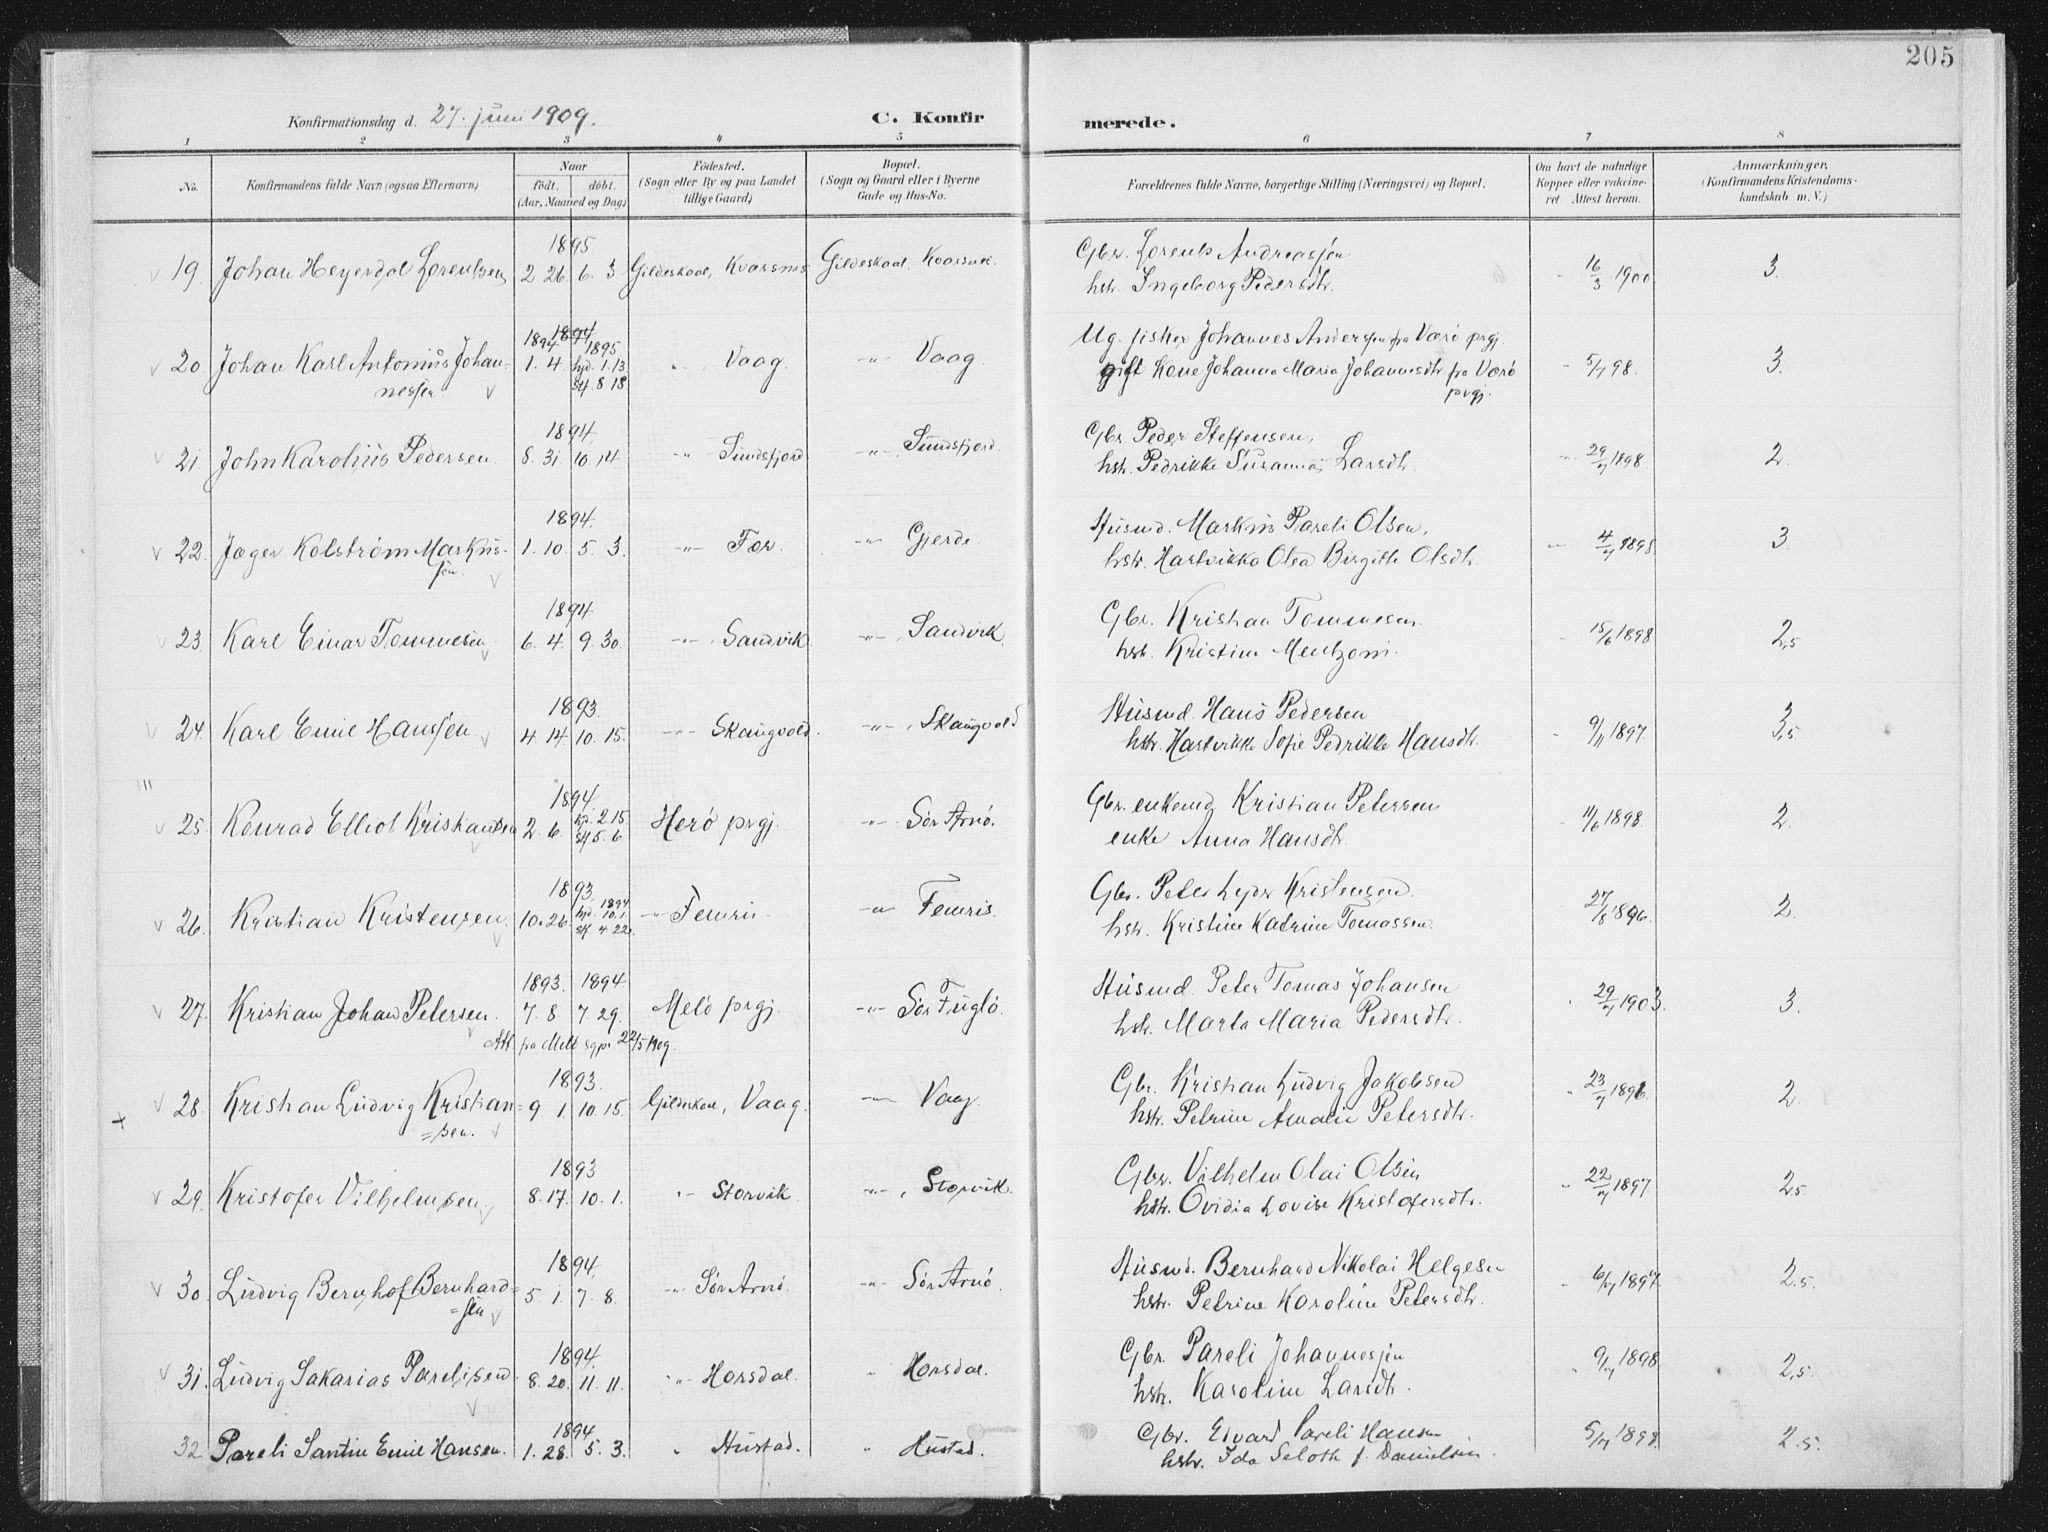 205
Konfirmationsdag d. 27. juni 1909.
C. Konfirmerede.
1 2 3 4 5 6 7 8
No. Konfirmandens fulde Navn (ogsaa Efternavn) Naar født. døbt. (Aar, Maaned og Dag) Fødested. (Sogn eller By og paa Landet tillige Gaard) Bopæl. (Sogn og Gaard eller i Byerne Gade og Hus-No. Forældrenes fulde Navne, borgerlige Stilling (Næringsvei) og Bopæl. Om havt de naturlige Kopper eller vakcineret Attest herom. Anmærkninger. (Konfirmandens Kristendomskundskab m. V.)
1895 Gbr. Lorents Andreassen
19. Johan Heyerdal Lorentsen 2 26. 6. 3 Gildeskaal, Kvarsnes Gildeskaal, Kvarsnes. 16/3 1900 3.
hstr. Ingeborg Pedersdtr.
1894 1894 1895 Ug. fisker Johannes Anderssen fra Værø prgj.
20 Johan Karl Antonius Johan- 1. 4. hjd. 1.13 " Vaag. -"- Vaag. 5/7 98. 3.
nessen st. 8. 18 gift Kone Johanna Maria Johannesdtr fra Værø
prgj.
1894 Gbr. Peder Steffensen,
21. John Karolius Pedersen 8. 31 10. 14 -"- Sundsfjord -"- Sundsfjord. -"- 29/7 1898 2.
hstr. Pedrikke Susanna Larsdtr.
1894. Husmd. Markus Pareli Olsen,
22. Jæger Kolstrøm Markus- 1. 10. 5. 3. -"- Før. -"- Gjerde. 4/7 1898 3.
sen. hstr. Hartvikka Olea Birgitte Olsdtr.
1894 Gbr. Kristian Tommesen
23. Karl Einar Tommesen 6. 4. 9. 30. -"- Sandvik -"- Sandvik. 15/6 1898 2,5
hstr. Kristine Mentzoni.
1893. Husmd. Hans Pedersen
24. Karl Emil Hanssen 4. 14. 10. 15. -"- Skaugvold. -"- Skaugvold 9/11 1897. 3,5
hstr. Hartvikke Sofie Pedrikke Hansdtr.
1894. Gbr. enkemd Kristian Petersen
25. Konrad Elliot Kristiansen 2. 6. hjd. 2.15 st 5. 6. Herø prgj. -"- Sør Arnø. 11/6 1898. 2.
enke Anna Hansdtr.
1893 Gbr. Peter Lyder Kristensen.
26. Kristian Kristensen. 10. 26. hjd. 1894 10.1. st 4. 22. -"- Femris -"- Femris. 27/8 1896. 2.
hstr. Kristine Katrine Tomassen.
1893. 1894 Husmd. Peter Tomas Johansen
27. Kristian Johan Petersen. 7. 8. 7. 29. Melø prgj. -"- Sør Fuglø. 29/7 1903. 3.
Att. fra Melø sgpr 22/5 1909. hstr. Marta Maria Pedersdtr.
1893. Gbr. Kristian Ludvig Jakobsen
+ 28. Kristian Ludvig Kristian= 9 1. 10. 15. Gildeskaal, Vaag. -"- Vaag. 23/7 1896. 2.
=sen. hstr. Petrine Amalie Petersdtr.
1893 Gbr. Vilhelm Olai Olsen
29. Kristofer Vilhelmsen. 8. 17. 10. 1. " Storvik. -"-, Storvik. " 22/7 1897 2,5.
hstr. Ovidia Lovise Kristofersdtr.
1894. Husmd. Bernhard Nikolai Helgesen
30. Ludvig Bernhof Bernhard= 5. 1. 7. 8. -"- Sør Arnø -"- Sør Arnø. 6/7 1897. 2.5.
=sen hstr. Petrine Karoline Petersdtr.
1894. Gbr. Pareli Johannessen
31. Ludvig Sakarias Parelisen 8. 20. 11. 11. -"- Horsdal. " Horsdal. 9/7 1898 2,5.
hstr. Karoline Larsdtr.
1894 Gbr. Edvard Pareli Hansen
32. Pareli Santin Emil Hansen. 1. 28. 5. 3. " Hustad. " Hustad. 5/7 1898. 2.5.
hstr. Ida Seloth f. Danielsen.